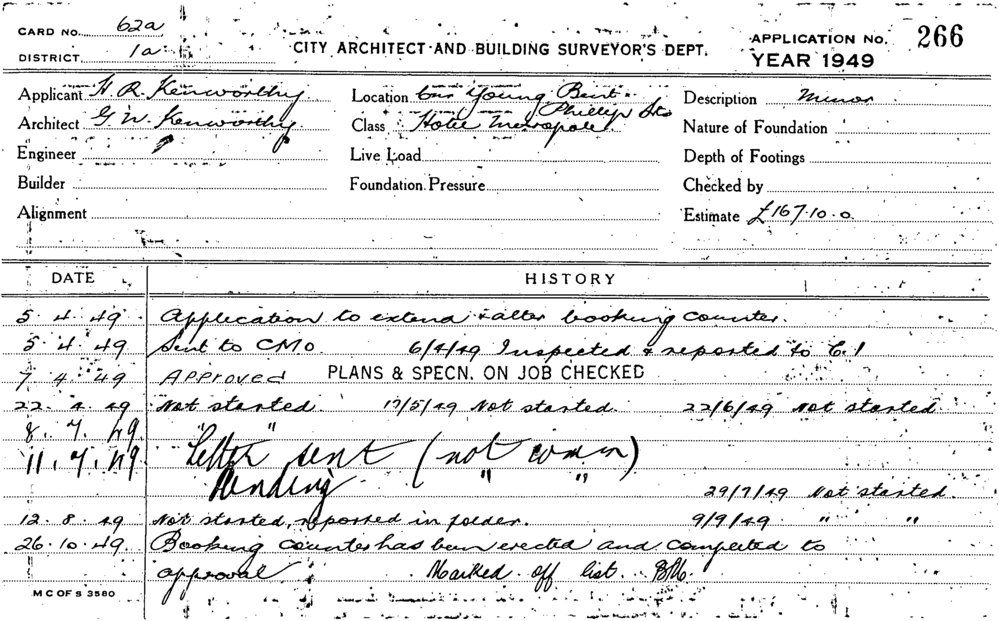 CARD No. 62a
DISTRICT 1a
CITY ARCHITECT AND BUILDING SURVEYOR'S DEPT.
APPLICATION No. 266
YEAR 1949
Applicant H. R. Kenworthy
Architect G. W. Kenworthy
Engineer
Builder
Alignment
Location Cnr Young Bent
Phillip Sts
Class Hotel Metropole
Live Load
Foundation Pressure
Description Minor
Nature of Foundation
Depth of Footings
Checked by
Estimate £167.10.0
DATE HISTORY
5. 4. 49 Application to extend & alter booking counter.
5. 4. 49 Sent to CMO. 6/4/49 Inspected & reported to C.I
7. 4. 49 Approved PLANS & SPECN. ON JOB CHECKED
22. 4. 49 Not started. 17/5/49 Not started. 22/6/49 Not started.
8. 7. 49
11. 7. 49 "Letter" sent (not comm)
Pending " "
29/7/49 Not started.
12. 8. 49 Not started, reported in folder. 9/9/49 " "
26. 10. 49 Booking counter has been erected and completed to
approval Marked off list.
M C OF S 3580